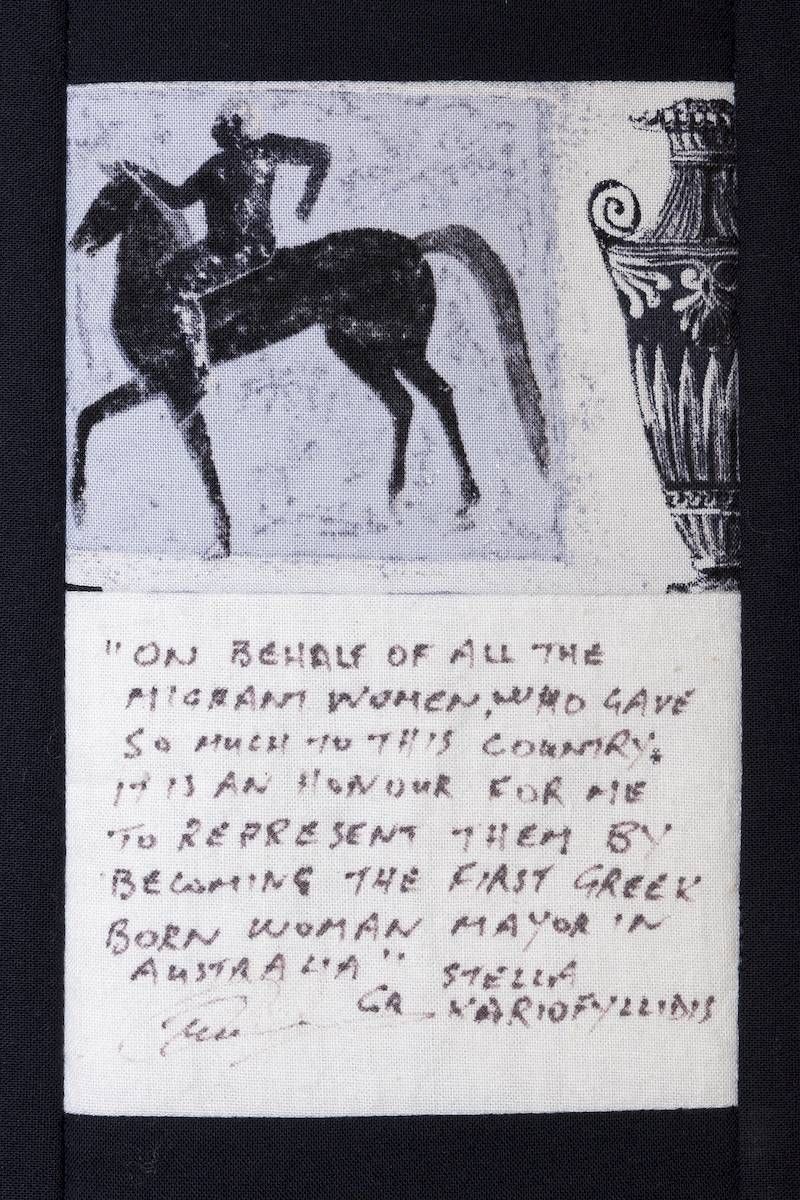 "ON BEHALF OF ALL THE
MIGRANT WOMEN, WHO GAVE
SO MUCH TO THIS COUNTRY.
IT IS AN HONOUR FOR ME
TO REPRESENT THEM BY
BECOMING THE FIRST GREEK
BORN WOMAN MAYOR IN
AUSTRALIA" STELLA
CR KARIOFYLLIDIS